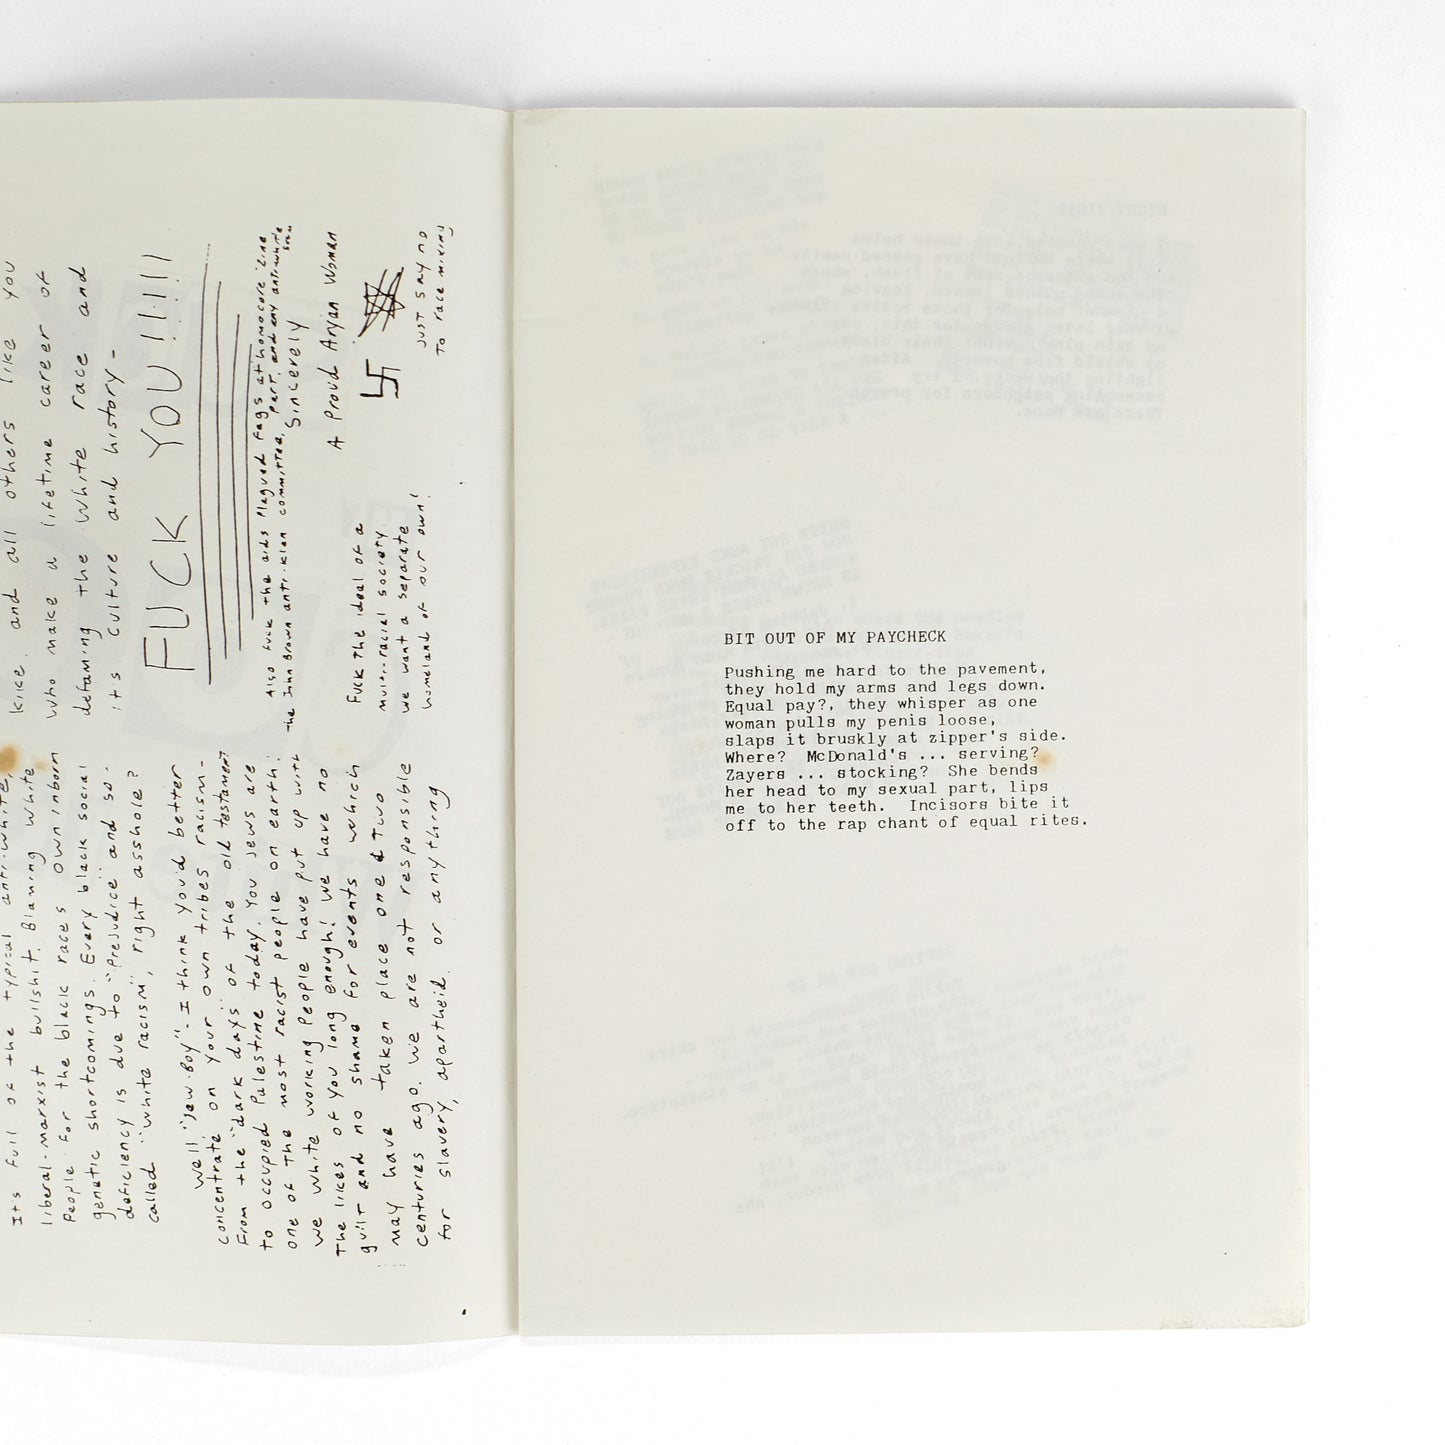 It's full of the typical anti-white,
liberal-marxist bullshit. Blaming White
People for the black races own inborn
genetic shortcomings. Every black social
deficiency is due to "prejudice" and so-
called "white racism", right asshole?
Well "Jew-Boy"- I think you'd better
concentrate on your own tribes racism-
From the "dark days" of the old testament
to occupied Palestine today. You Jews are
one of the most racist people on earth!
We white working people have put up with
The likes of you long enough! We have no
guilt and no shame for events which
may have taken place one & Two
centuries ago. We are not responsible
for slavery, apartheid or anything
kike. and all others like you
who make a lifetime career of
defaming the white race and
it's culture and history-
FUCK YOU!!!!!
Also fuck the aids plagued fags at homocore zine
the John Brown anti-klan committee, Part, and any anti-white
scum
Sincerely
A Proud Aryan Woman
Fuck The ideal of a
multi-racial society.
we want a separate
homeland of our own!
JUST SAY NO
To race mixing
BIT OUT OF MY PAYCHECK
Pushing me hard to the pavement,
they hold my arms and legs down.
Equal pay?, they whisper as one
woman pulls my penis loose,
slaps it bruskly at zipper's side.
Where? McDonald's ... serving?
Zayers ... stocking? She bends
her head to my sexual part, lips
me to her teeth. Incisors bite it
off to the rap chant of equal rites.